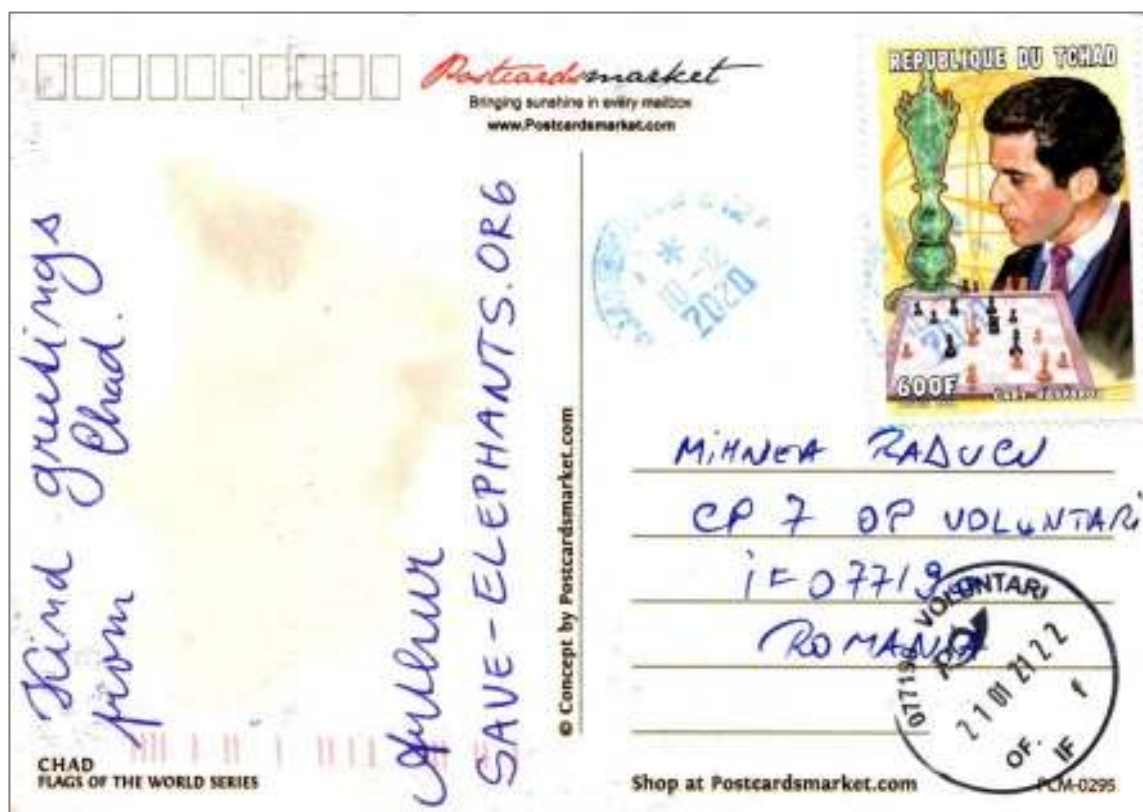 Postcardsmarket
Bringing sunshine in every mailbox
www.Postcardsmarket.com
REPUBLIQUE DU TCHAD
600F
10 - 12
2020
Kind greetings
from Chad.
Arthur
SAVE-ELEPHANTS.ORG
© Concept by Postcardsmarket.com
MIHNEA RADUCU
CP 7 OP VOLUNTARI
IF 07719
ROMANIA
077190 VOLUNTARI
21 01 21 22
f
OF. IF
CHAD
FLAGS OF THE WORLD SERIES
Shop at Postcardsmarket.com
PCM-0295